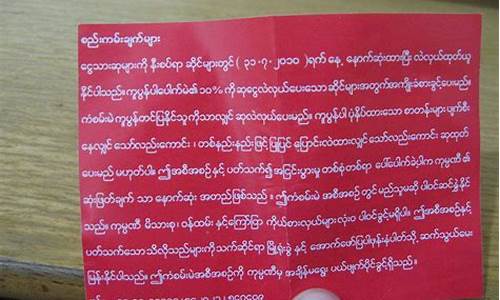 စည်းကမ်းချက်များ
ငွေသားဆုများကို နီးစပ်ရာ ဆိုင်များတွင် ( ၃၁-၇-၂၀၁၀ )ရက် နေ့ နောက်ဆုံးထားပြီး လဲလှယ်ထုတ်ယူ
နိုင်ပါသည်။ ကူပွန်ပါပေါက်မဲ၏ ၁၀% ကို ဆုငွေလဲလှယ်ပေးသော ဆိုင်များအတွက် အကျိုးခံစားခွင့်ပေးမည်။
ကံစမ်းမဲ ကူပွန်တင်ပြနိုင်သူကိုသာလျှင် ဆုလဲလှယ်ပေးမည်။ ကူပွန်ပါ ပုံနှိပ်ထားသော စာတန်းများ ပျက်စီး
နေလျှင် သော်လည်းကောင်း ၊ တစ်နည်းနည်းဖြင့် ပြုပြင် ပြောင်းလဲထားလျှင် သော်လည်းကောင်း ဆုထုတ်
ပေးမည် မဟုတ်ပါ။ ဤအစီအစဉ် နှင့် ပတ်သက်၍ အငြင်းပွားမှု တစ်စုံတစ်ရာ ပေါ်ပေါက်ခဲ့ပါက ကုမ္ပဏီ ၏
ဆုံးဖြတ်ချက် သာ နောက်ဆုံး အတည်ဖြစ်သည် ။ ဤကံစမ်းမဲ အစီအစဉ် တွင် မည်သူမဆို ပါဝင်ဆင်နွှဲ နိုင်
သည်။ ကုမ္ပဏီ မိသားစု ၊ ဝန်ထမ်း နှင့် ကြော်ငြာ ကိုယ်စားလှယ်များလုံးဝ ပါဝင်ခွင့်မရှိပါ။ ဤအစီအစဉ်နှင့်
ပတ်သက်သော သိလိုသည်များကို သက်ဆိုင်ရာ မြို့ရုံးခွဲ နှင့် အောက်ဖော်ပြပါဖုန်းနံပါတ်သို့ ဆက်သွယ်မေး
မြန်းနိုင်ပါသည်။ ဤကံစမ်းမဲအစီအစဉ်ကို ကုမ္ပဏီမှ အချိန်မရွေး ပယ်ဖျက်ပိုင်ခွင့်ရှိသည်။